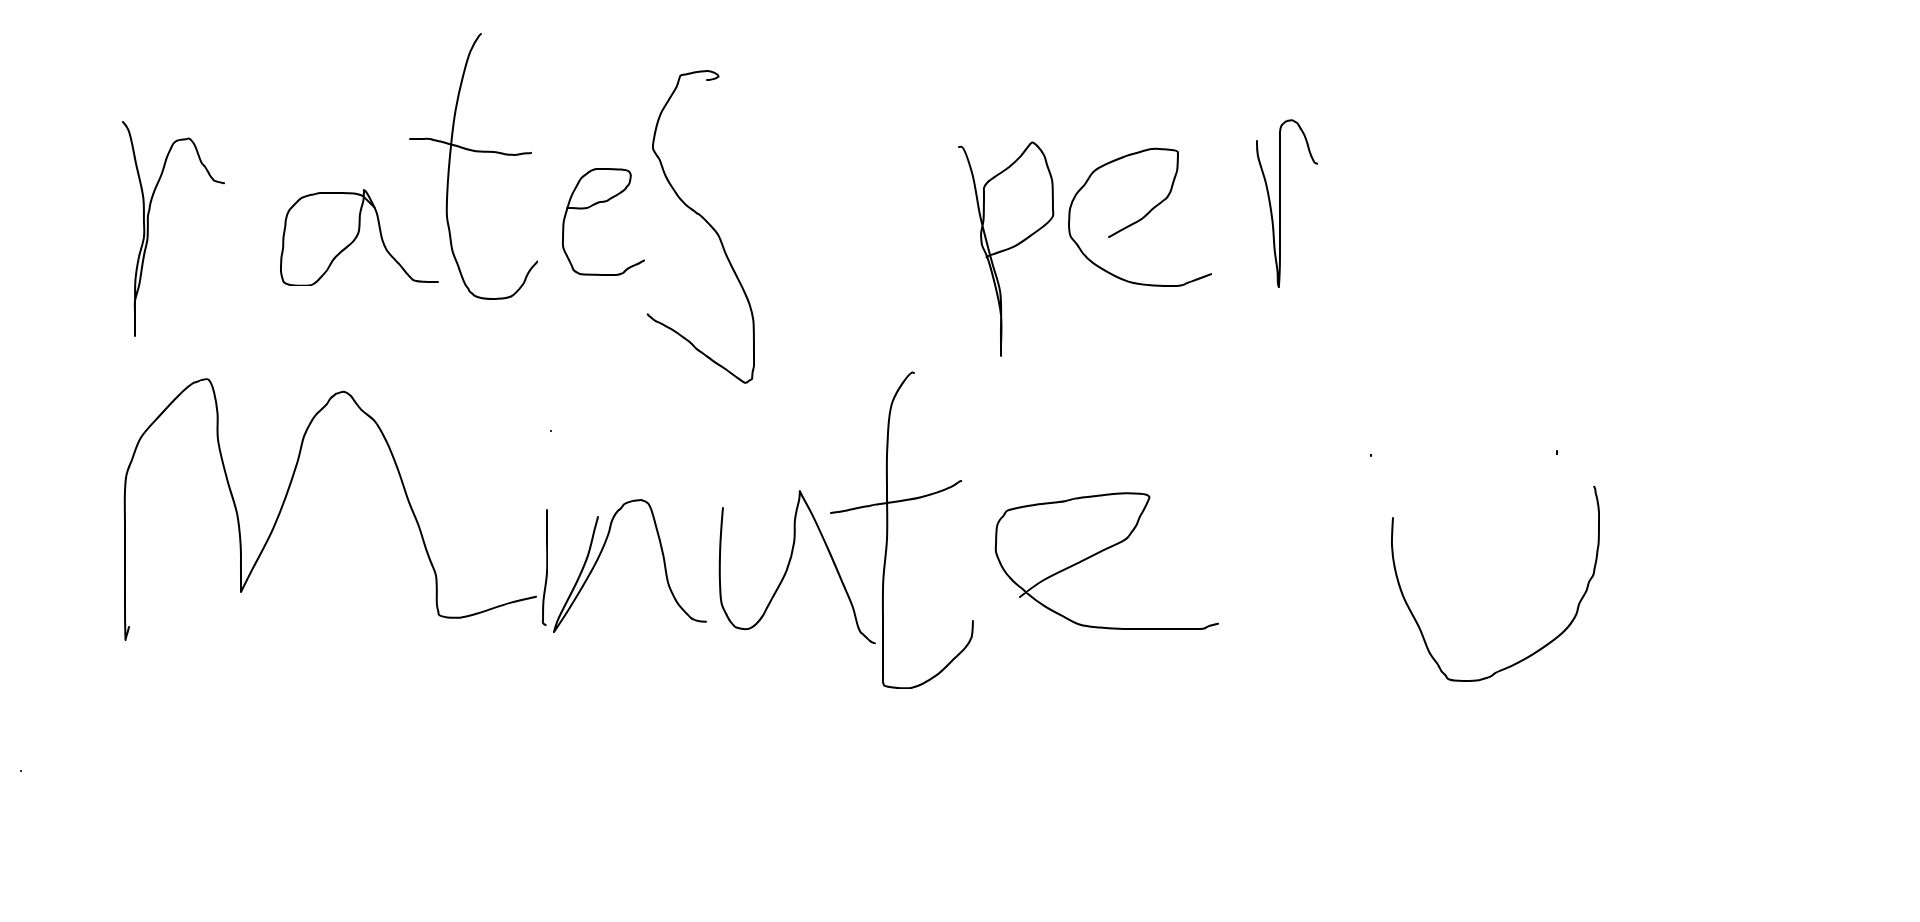 rates per
Minute ü